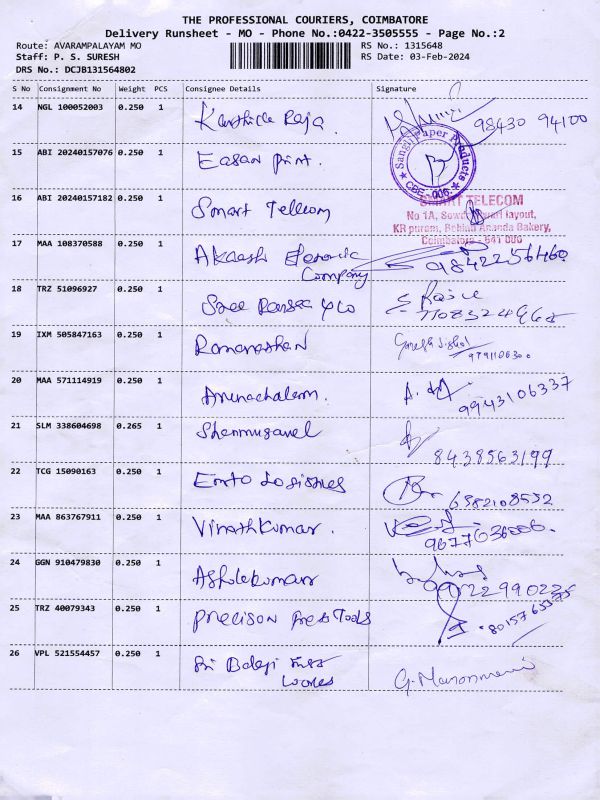 THE PROFESSIONAL COURIERS, COIMBATORE
Delivery Runsheet - MO - Phone No.:0422-3505555 - Page No.:2
Route: AVARAMPALAYAM MO RS No.: 1315648
Staff: P. S. SURESH RS Date: 03-Feb-2024
DRS No.: DCJB131564802
S No Consignment No Weight PCS Consignee Details Signature
14 NGL 100052003 0.250 1 Karthick Raja 98430 94100
15 ABI 20240157076 0.250 1 Easan Print.
Sangli Paper Products
CBE - 006.
16 ABI 20240157182 0.250 1 Smart Telecom
SMART TELECOM
No 1A, layout,
KR puram, Behind Ananda Bakery,
Coimbatore - 641 006
17 MAA 108370588 0.250 1 Akaash
Company 9842256460
18 TRZ 51096927 0.250 1 Sree & Co
19 IXM 505847163 0.250 1 Ramanathan
9791106300
20 MAA 571114919 0.250 1 Arunachalam.
9943106337
21 SLM 338604698 0.265 1 Shanmugavel
8438563199
22 TCG 15090163 0.250 1 Logistics
6382108532
23 MAA 863767911 0.250 1 Vinothkumar.
24 GGN 910479830 0.250 1 Ashokkumar
25 TRZ 40079343 0.250 1 Precison Press Tools
26 VPL 521554457 0.250 1 Sri Balaji
Works G. Manonmani